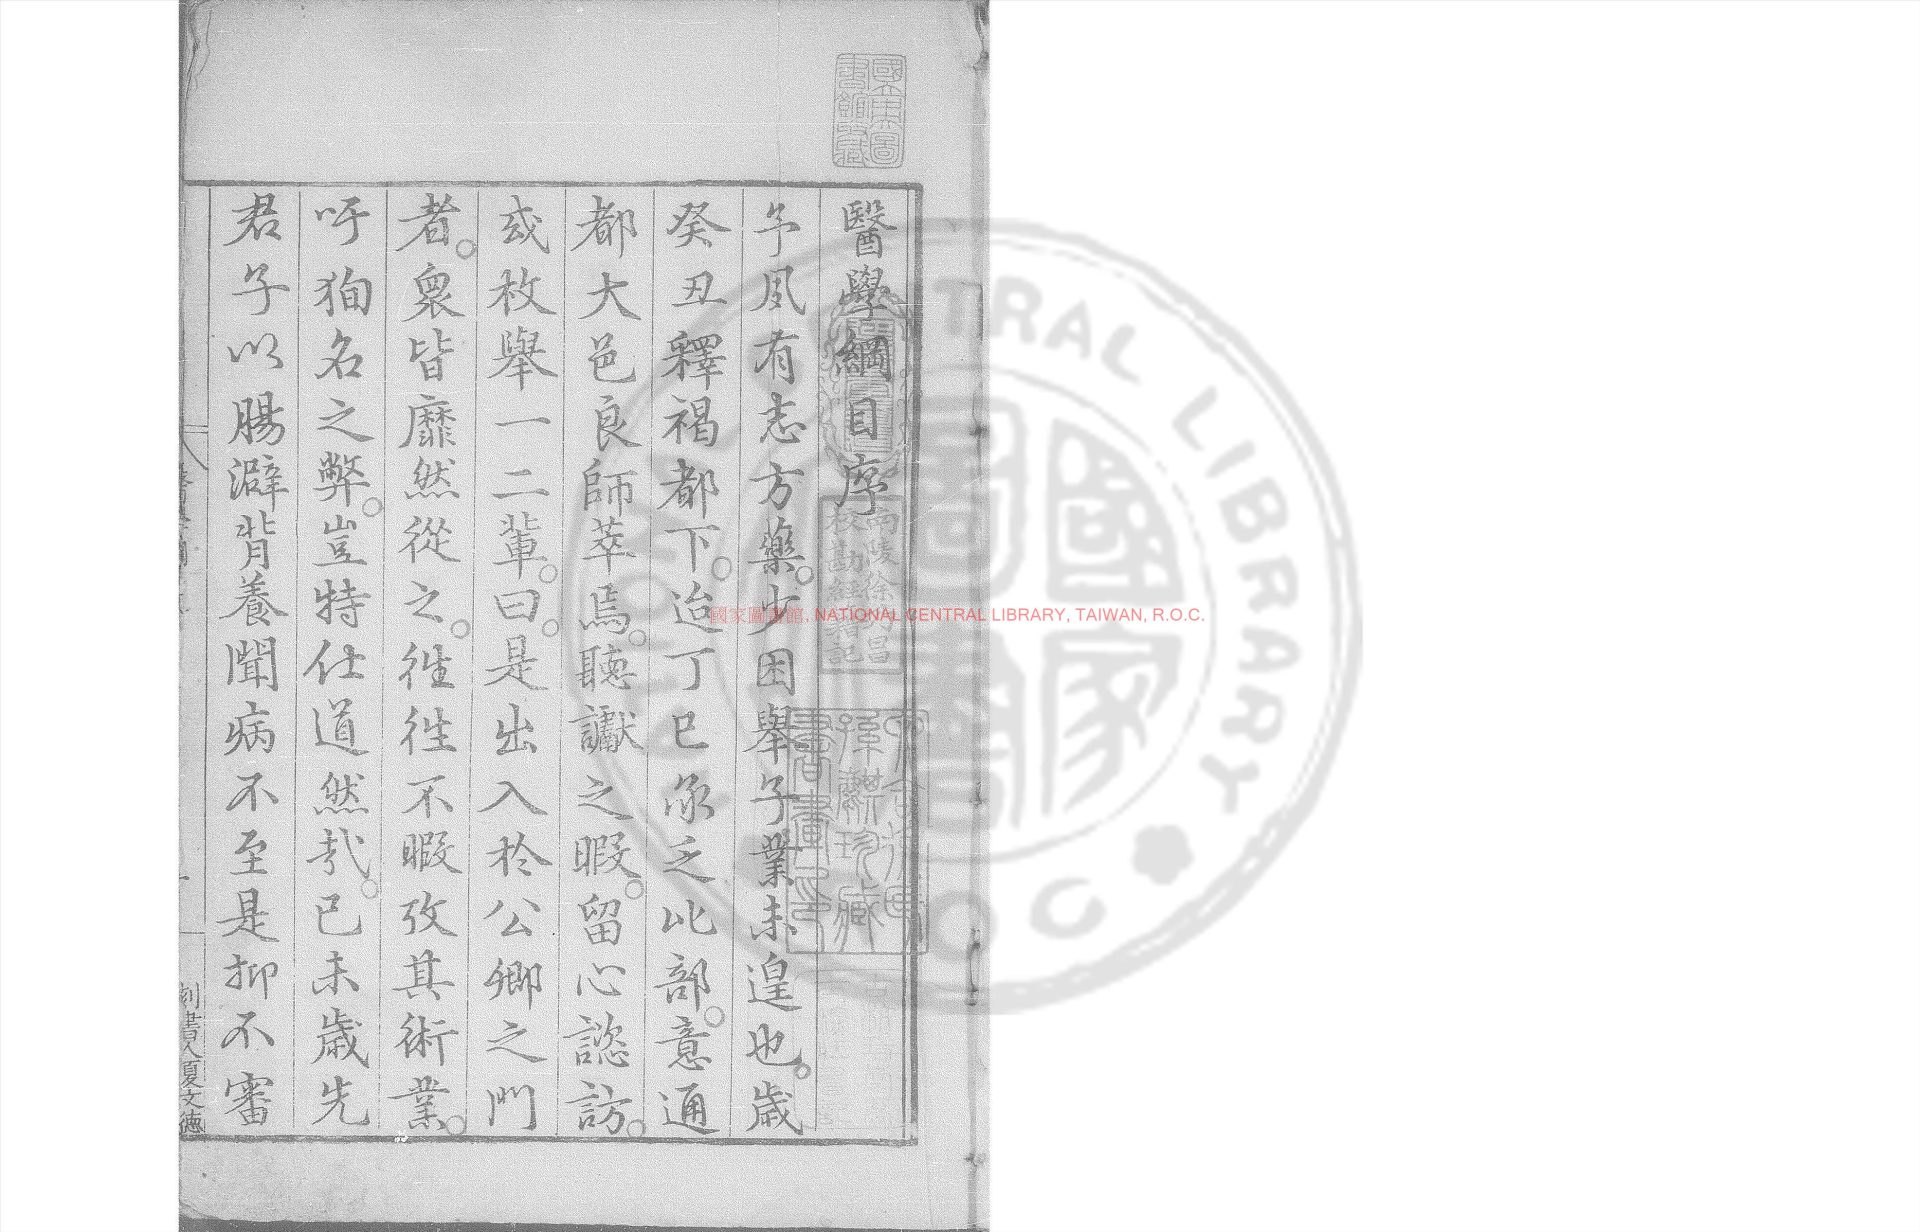 醫學綱目序
予夙有志方藥少困舉子業未遑也歲
癸丑釋褐都下迨丁巳承乏比部意通
都大邑良師萃焉聽讞之暇留心諮訪
或枚舉一二輩曰是出入於公卿之門
者衆皆靡然從之徃徃不暇攷其術業
吁狥名之弊豈特仕道然㢤已未歲先
君子以腸澼背養聞病不至是抑不審
刻書人夏文德
國立中央圖書館收藏
南陵徐乃昌校勘經籍記
國家圖書館, NATIONAL CENTRAL LIBRARY, TAIWAN, R.O.C.